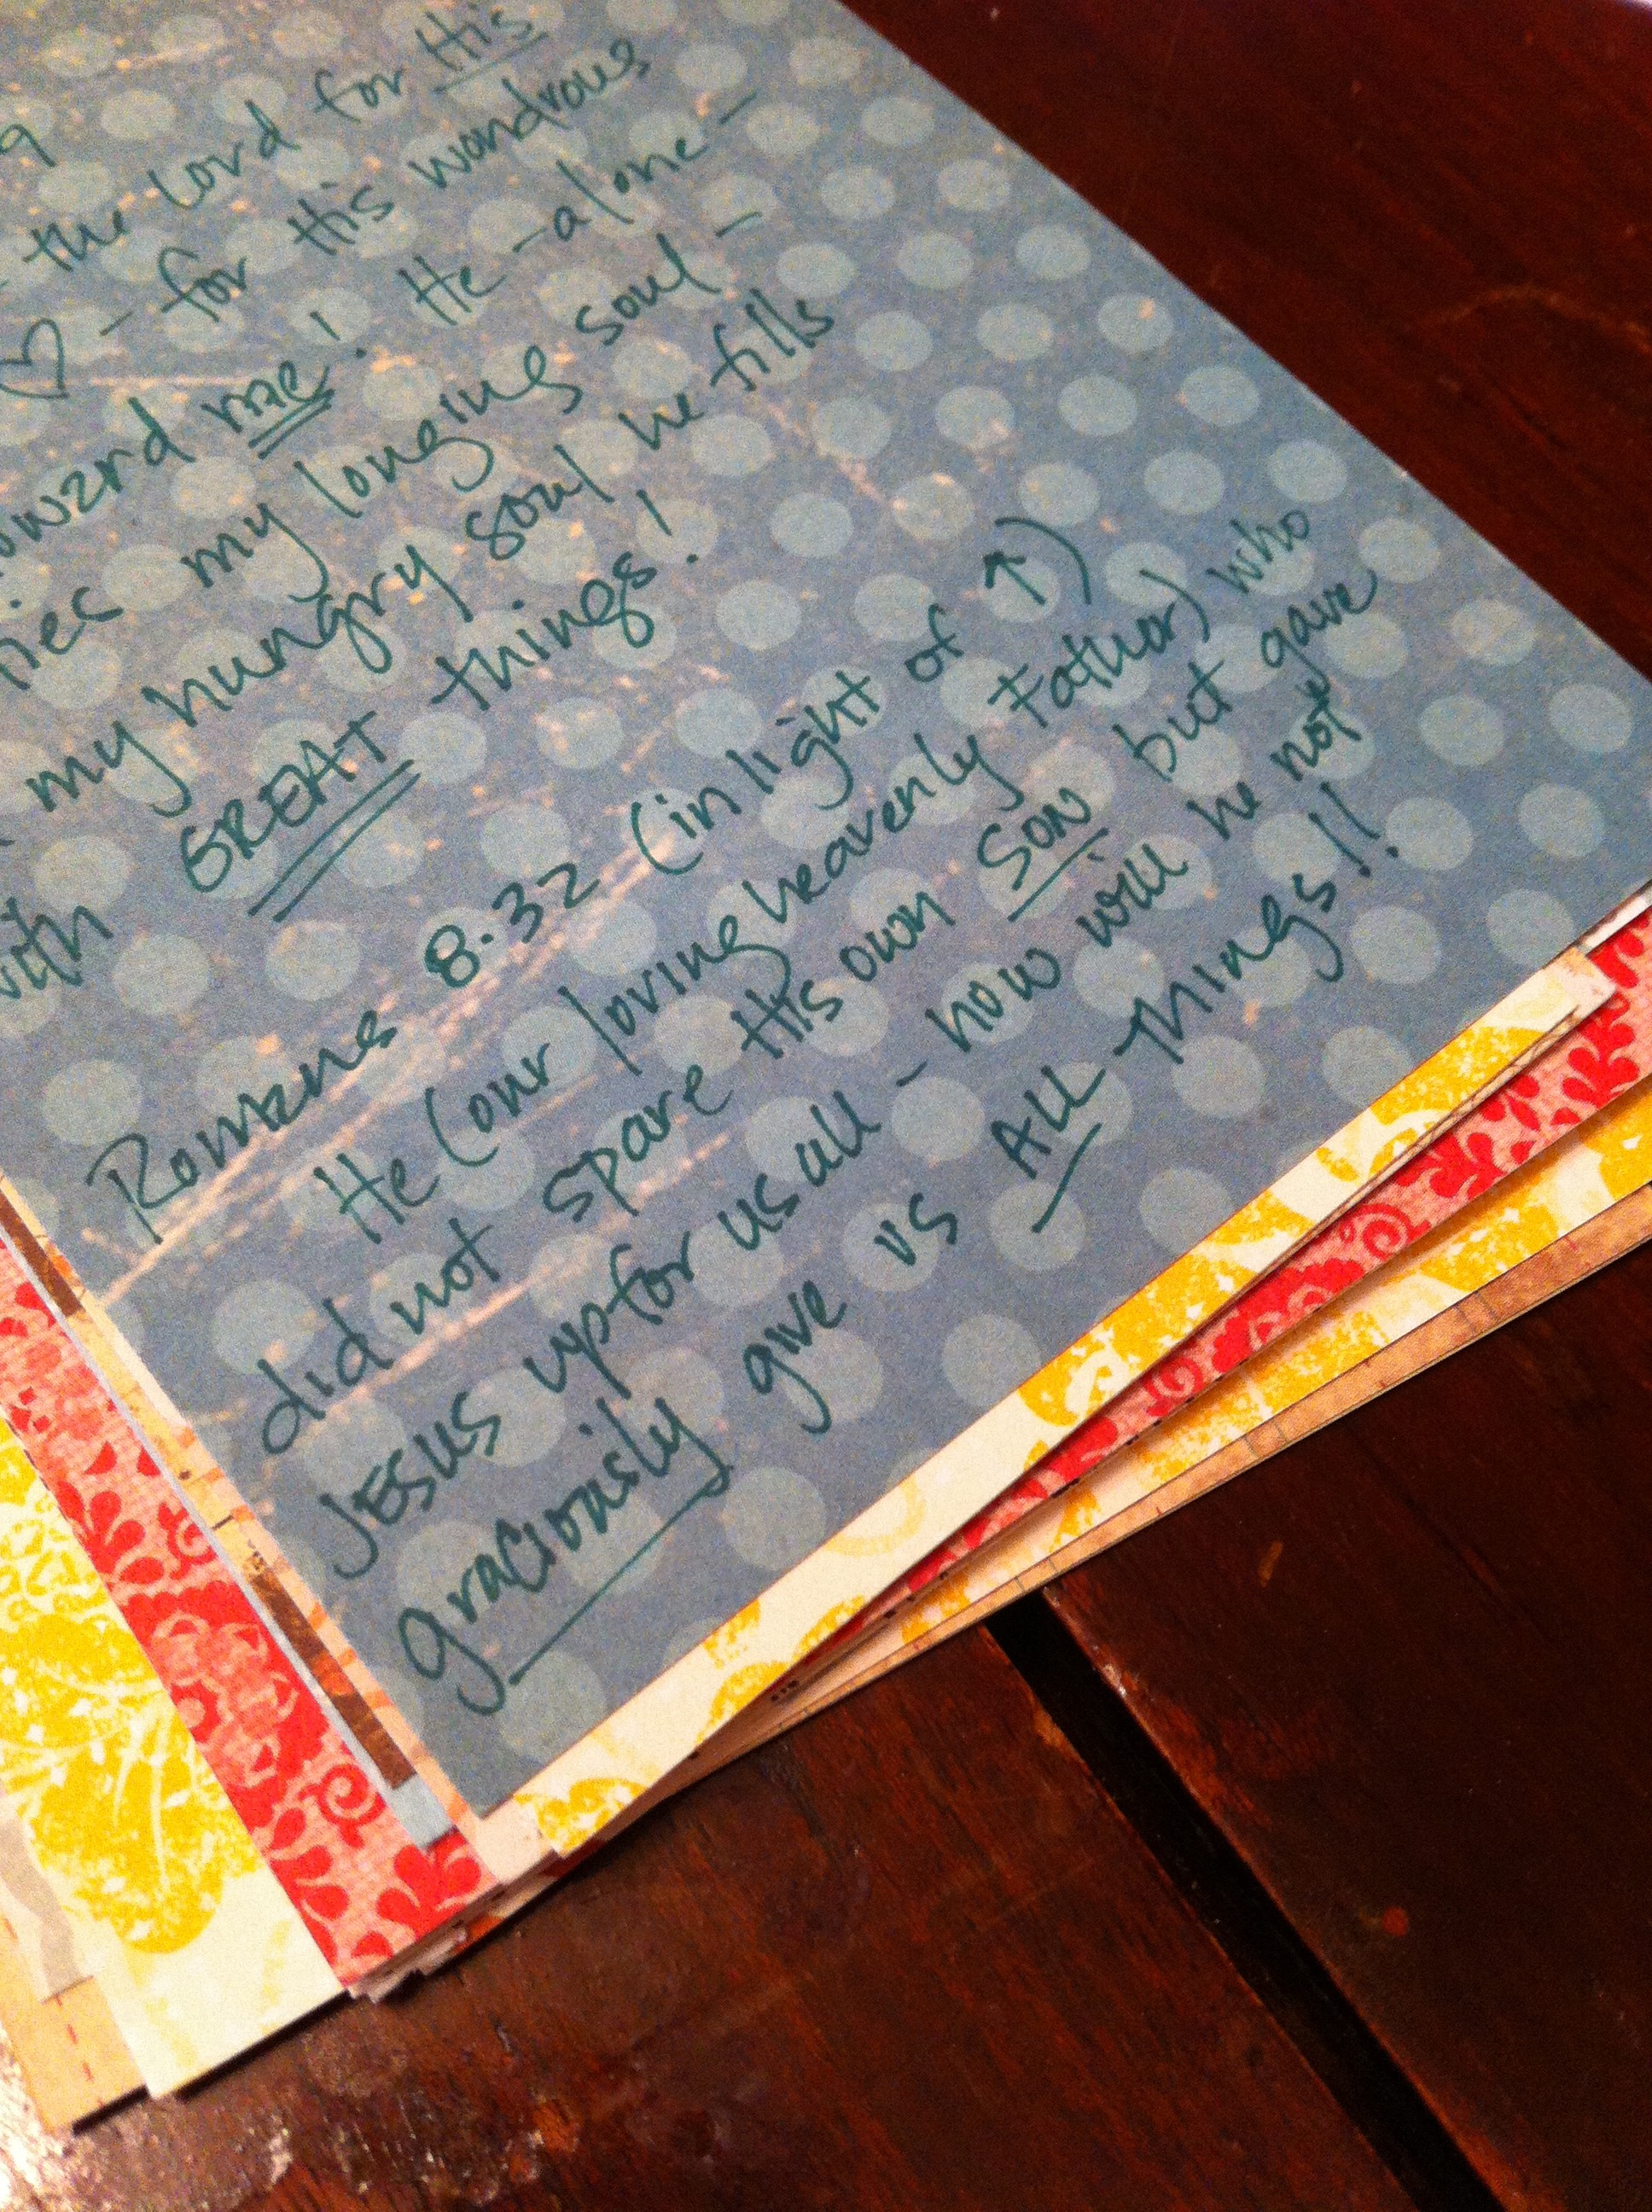 9
the Lord for His
♡ - for His wondrous
toward me! He - alone -
my longing soul -
my hungry soul he fills
with GREAT things!
Romans 8.32 (in light of ↑)
He (our loving heavenly Father) who
did not spare His own SON but gave
JESUS up for us all - how will he not
graciously give us ALL things!!